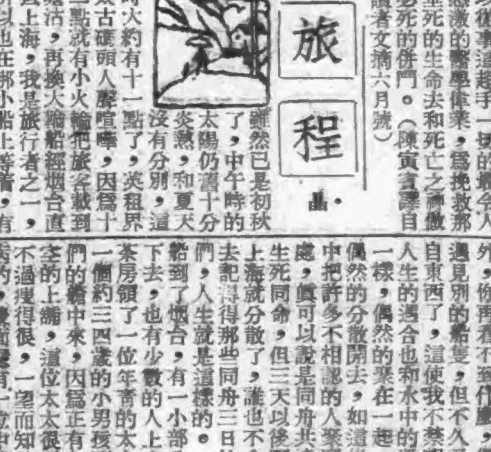 以從事這超乎一切的最令人
感激的醫學偉業,爲挽救那
垂死的生命去和死亡之神做
必死的併鬥。(陳寅賓譯自
讀者文摘六月號)
旅程
晶·
雖然已是初秋
了,中午時的
太陽仍舊十分
炎熱,和夏天
沒有分別,這
時大約有十一點了,英租界
太古碼頭人聲喧嘩,因爲十
點就有小火輪把旅客載到
塘沽,再換大輪船經烟台直
去上海,我是旅行者之一,
所以也在那小船上等着,有
外,你再看不到什麼,
遇見別的船隻,但不久
自東西了,這使我不禁
人生的遇合也和水中的
一樣,偶然的聚在一起
偶然的分散開去,如這
中把許多不相認的人聚
處,眞可以說是同舟共
生死同命,但三天以後
上海就分散了,誰也不
去記得那些同舟三日的
們,人生就是這樣的。
船到了烟台,有一小部
下去,也有少數的人上
茶房領了一位年靑的太
一個約三四歲的小男孩
們的艙中來,因爲正有
空的上舖,這位太太很
不過瘦得很,一望而知